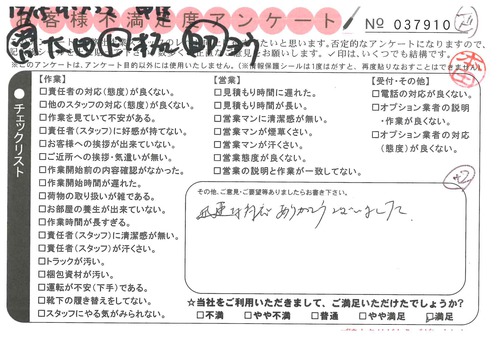 お客様不満足度アンケート
No 037910
たいと思います。否定的なアンケートになりますので、
お願いします。✓印は、いくつでも結構です。
※このアンケートは、アンケート目的以外には使用いたしません。(※情報保護シールは1度はがすと、再度貼りなおすことはできません)
チェックリスト
【作業】
□責任者の対応(態度)が良くない。
□他のスタッフの対応(態度)が良くない。
□作業を見ていて不安がある。
□責任者(スタッフ)に好感が持てない。
□お客様への挨拶が出来ていない。
□ご近所への挨拶・気遣いが無い。
□作業開始前の内容確認がなかった。
□作業開始時間が遅れた。
□荷物の取り扱いが雑である。
□お部屋の養生が出来ていない。
□作業時間が長すぎる。
□責任者(スタッフ)に清潔感が無い。
□責任者(スタッフ)が汗くさい。
□トラックが汚い。
□梱包資材が汚い。
□運転が不安(下手)である。
□靴下の履き替えをしてない。
□スタッフにやる気がみられない。
【営業】
□見積もり時間に遅れた。
□見積もり時間が長い。
□営業マンに清潔感が無い。
□営業マンが煙草くさい。
□営業マンが汗くさい。
□営業態度が良くない。
□営業の説明と作業が一致してない。
【受付・その他】
□電話の対応が良くない。
□オプション業者の説明
・作業が良くない。
□オプション業者の対応
(態度)が良くない。
+2
その他、ご意見・ご要望等ありましたらお書き下さい。
迅速な対応ありがとうございました
☆当社をご利用いただきまして、ご満足いただけたでしょうか?
□不満 □やや不満 □普通 □やや満足 ☑満足